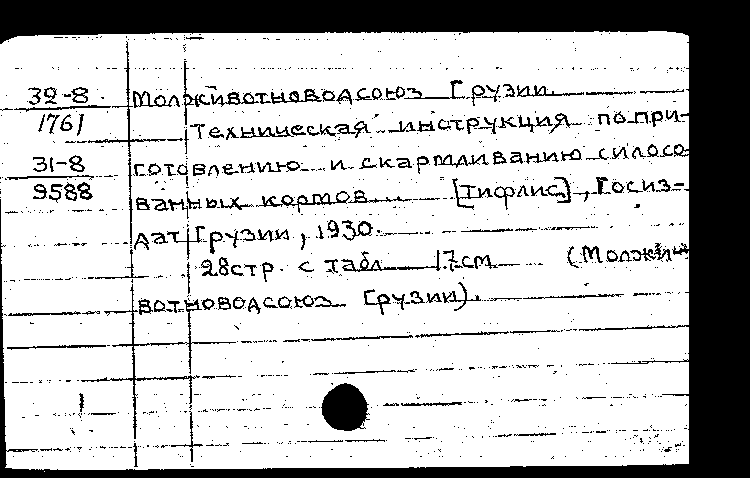 32-8 Молживотноводсоюз Грузии.
1761 Техническая инструкция по при-
31-8 готовлению и скармливанию силосо
9588 ванных кормов... [Тифлис], Госиз-
дат Грузии, 1930.
28стр. с табл 17см (Молжи-
вотноводсоюз Грузии).